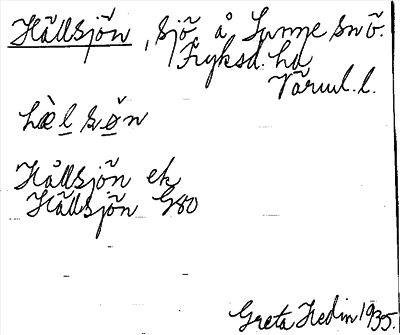 Hällsjön, sjö, å, Sunne snö.
Fryksd. hd
Värml. l.
hæl sön
Hållsjön ek
Hällsjön G80
Greta Hedin 1935.